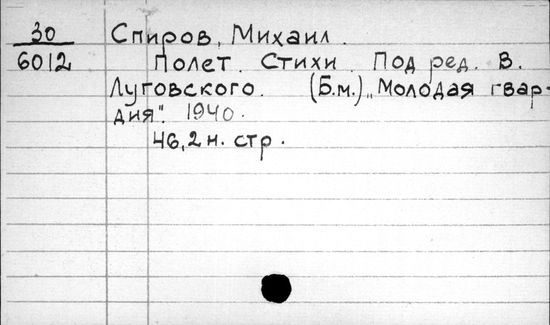 30 Спиров, Михаил.
6012 Полет. Стихи. Под ред. В.
Луговского. (Б.м.) „Молодая гвар-
дия". 1940.
46,2 н. стр.